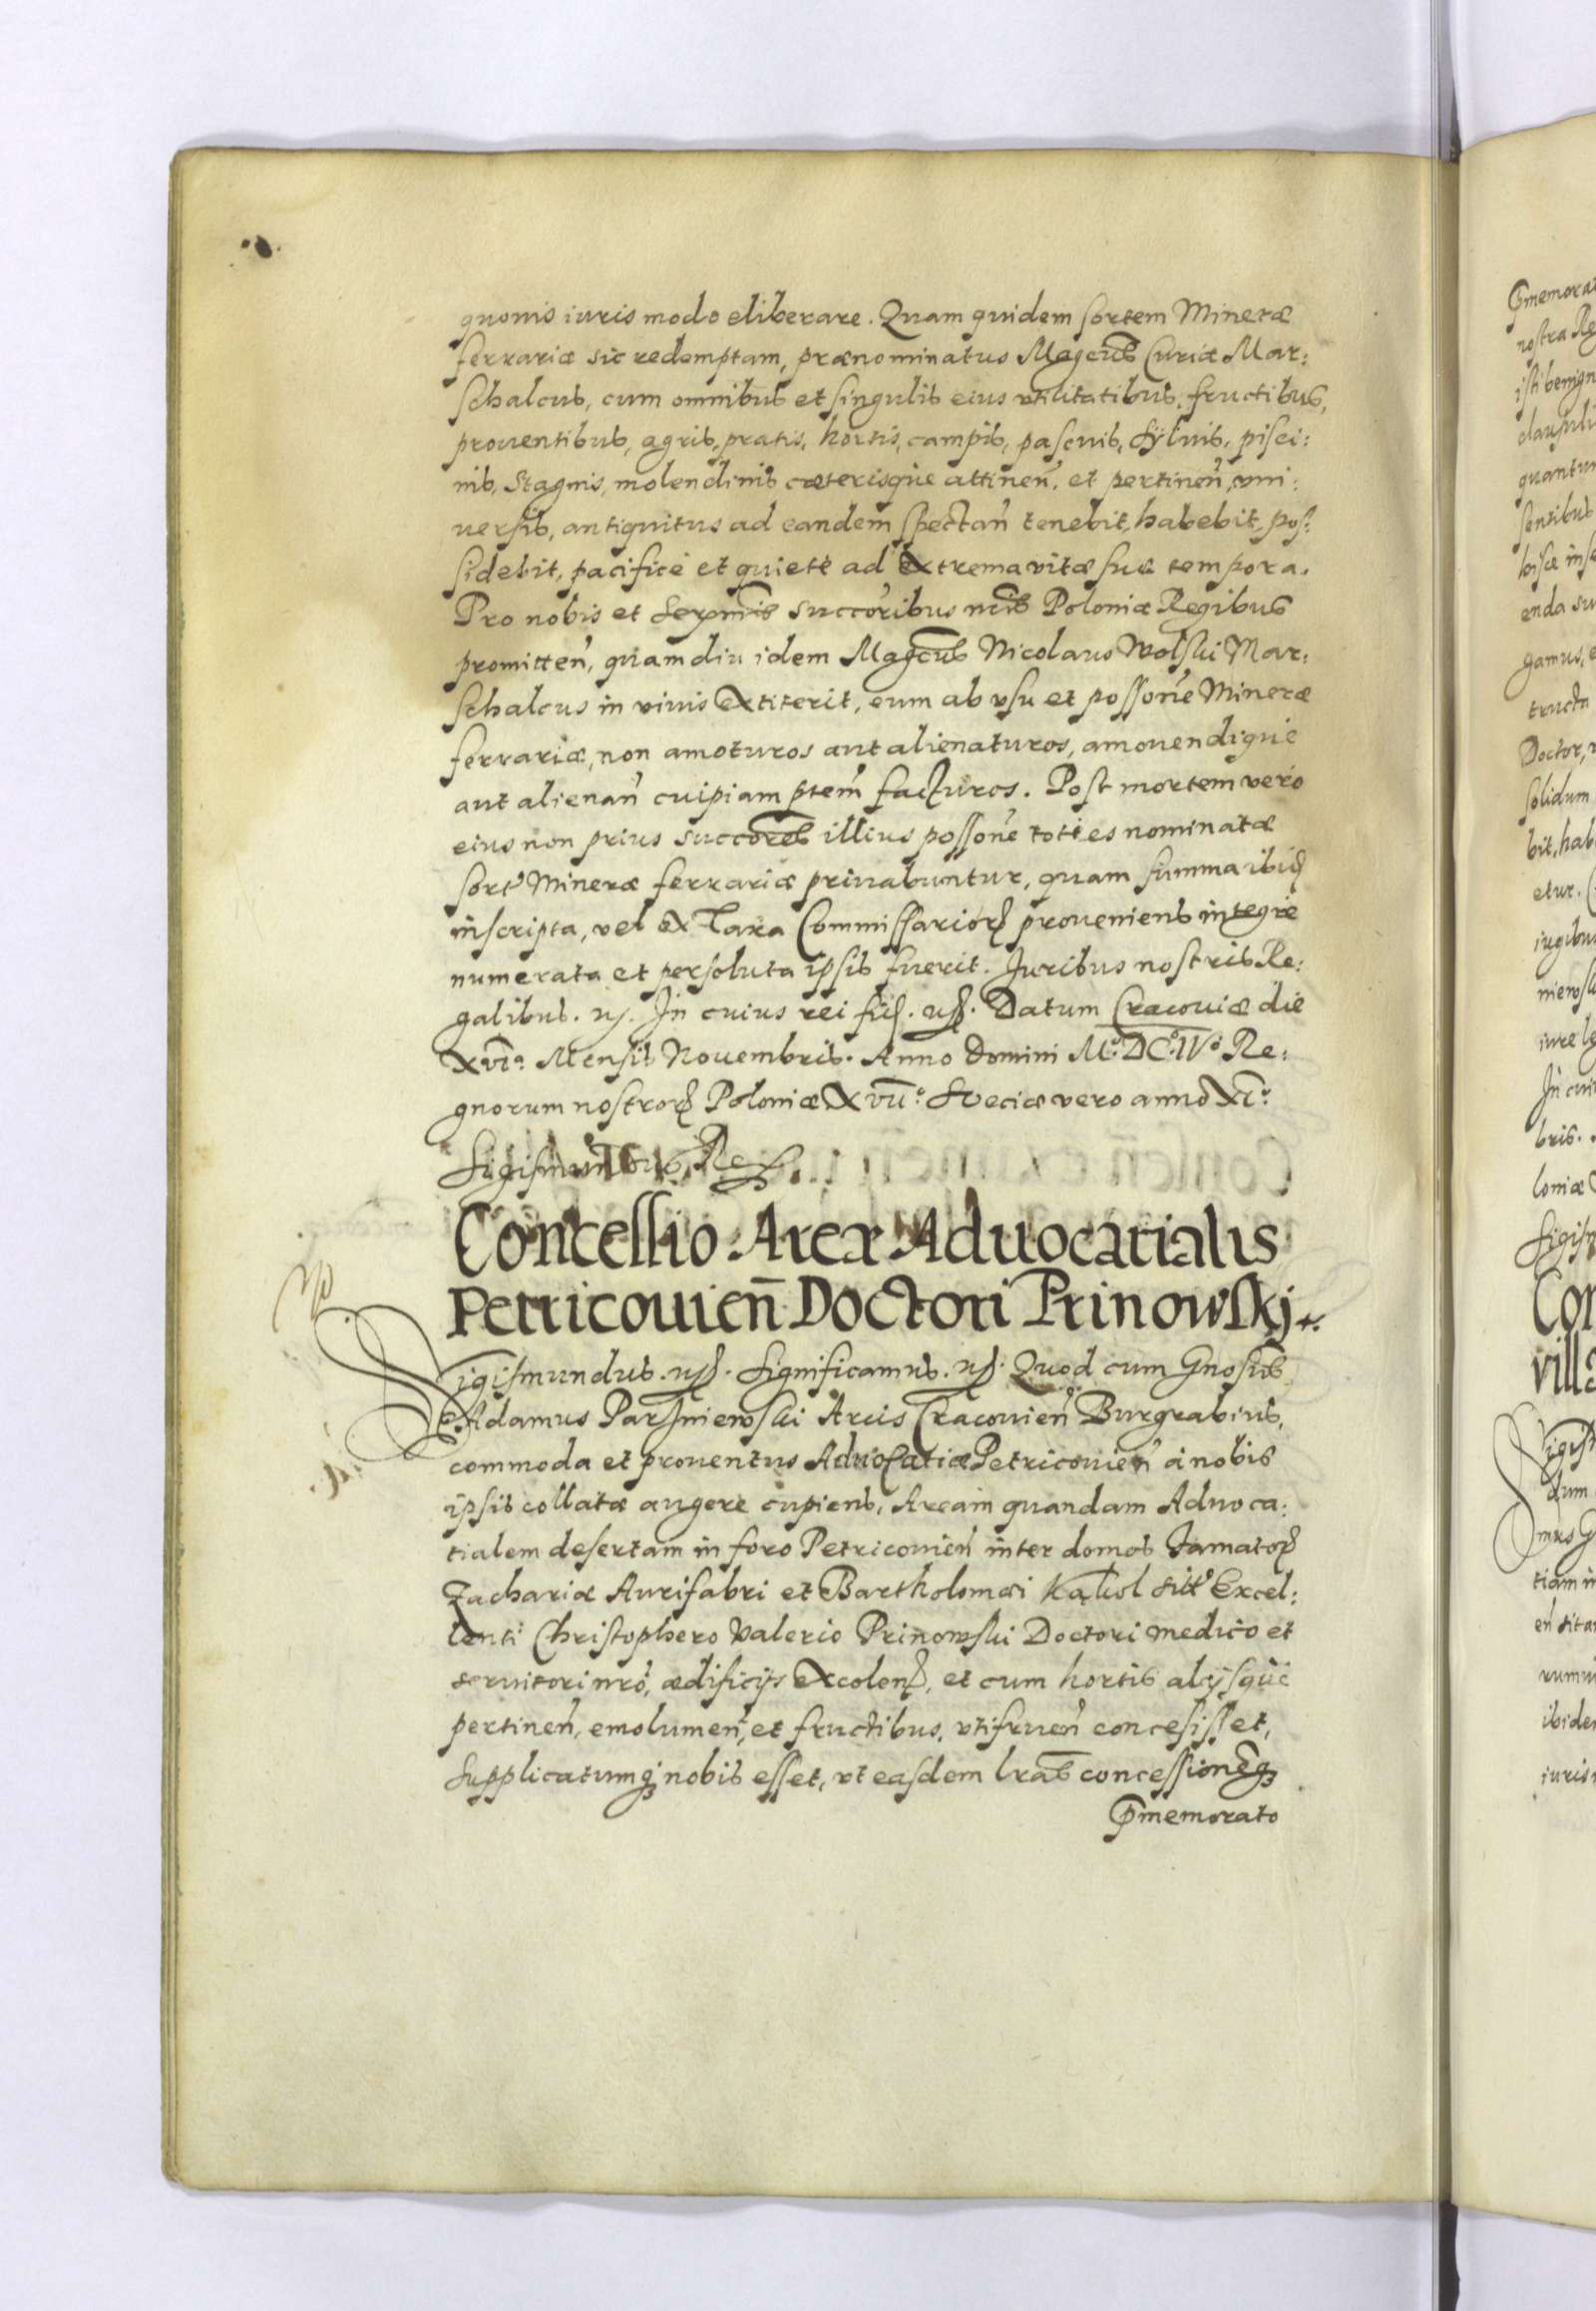 quouis iuris modo eliberare. Quam quidem sortem Mineræ
ferrariæ sic redemptam, prænominatus Magcus Curiæ Mar:
schalcus, cum omnibus et singulis eius vtilitatibus, fructibus,
prouentibus, agris, pratis, hortis, campis, pascuis, syluis, pisci:
nis, stagnis, molendinis cæterisque attinen̄. et pertinen̄, vni:
uersis, antiquitus ad eandem spectan̄ tenebit, habebit, pos:
sidebit, pacifice et quiete ad extrema vitæ suæ tempora.
Pro nobis et Serpmis succoribus nris Poloniæ Regibus
promitten̄, quam diu idem Magcus Nicolaus Wolski Mar:
schalcus in viuis extiterit, eum ab vsu et possone Mineræ
ferrariæ, non amoturos aut alienaturos, amouendique
aut alienan̄ cuipiam ptem facturos. Post mortem vero
eius non prius succores illius possone toties nominatæ
sort Mineræ ferrariæ priuabuntur, quam summa ibid
inscripta, vel ex Taxa Commissarioꝝ proueniens integre
numerata et persoluta ipsis fuerit. Juribus nostris Re:
galibus. In cuius rei fid. Datum Cracouiæ die
XVIa. Mensis Nouembris. Anno Domini Mo.DCo.IVo Re:
gnorum nostroꝝ Poloniæ XVIIo. Sveciæ vero anno XIo.
Sigismundus Rex.
Concessio Areæ Aduocatialis
Petricouien̄ Doctori Prinowskj
Sigismundus. Significamus. Quod cum Gnosus
Adamus Parzniewski Arcis Cracouien̄ Burgrabius,
commoda et prouentus Aduocatiæ Petricouien̄ a nobis
ipsis collatæ augere cupiens, Aream quandam Aduoca:
tialem desertam in foro Petricouien̄ inter domos Famatoꝝ
Zachariæ Aurifabri et Bartholomæi Kąkol sitt Excel:
lenti Christophero Valerio Prinowski Doctori medico et
seruitori nro, ædificijs excolend, et cum hortis alijsque
pertinen̄, emolument, et fructibus, vtifruen̄ concesisset,
Supplicatumqꝫ nobis esset, vt easdem lras concessioneqꝫ
Pmemorato